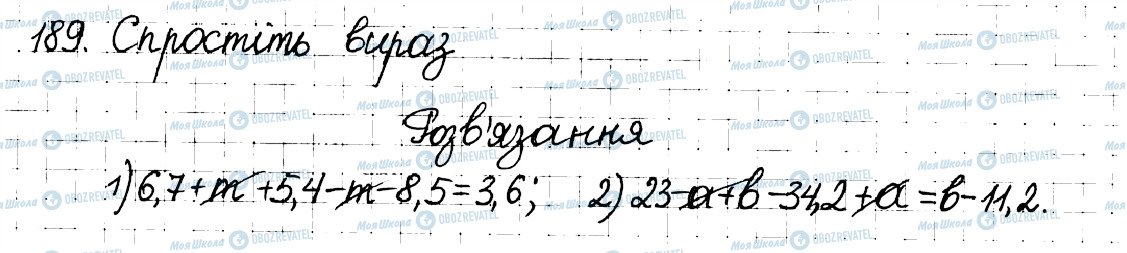 189. Спростіть вираз
Розв'язання
1) 6,7 + m + 5,4 - m - 8,5 = 3,6; 2) 23 - a + b - 34,2 + a = b - 11,2.